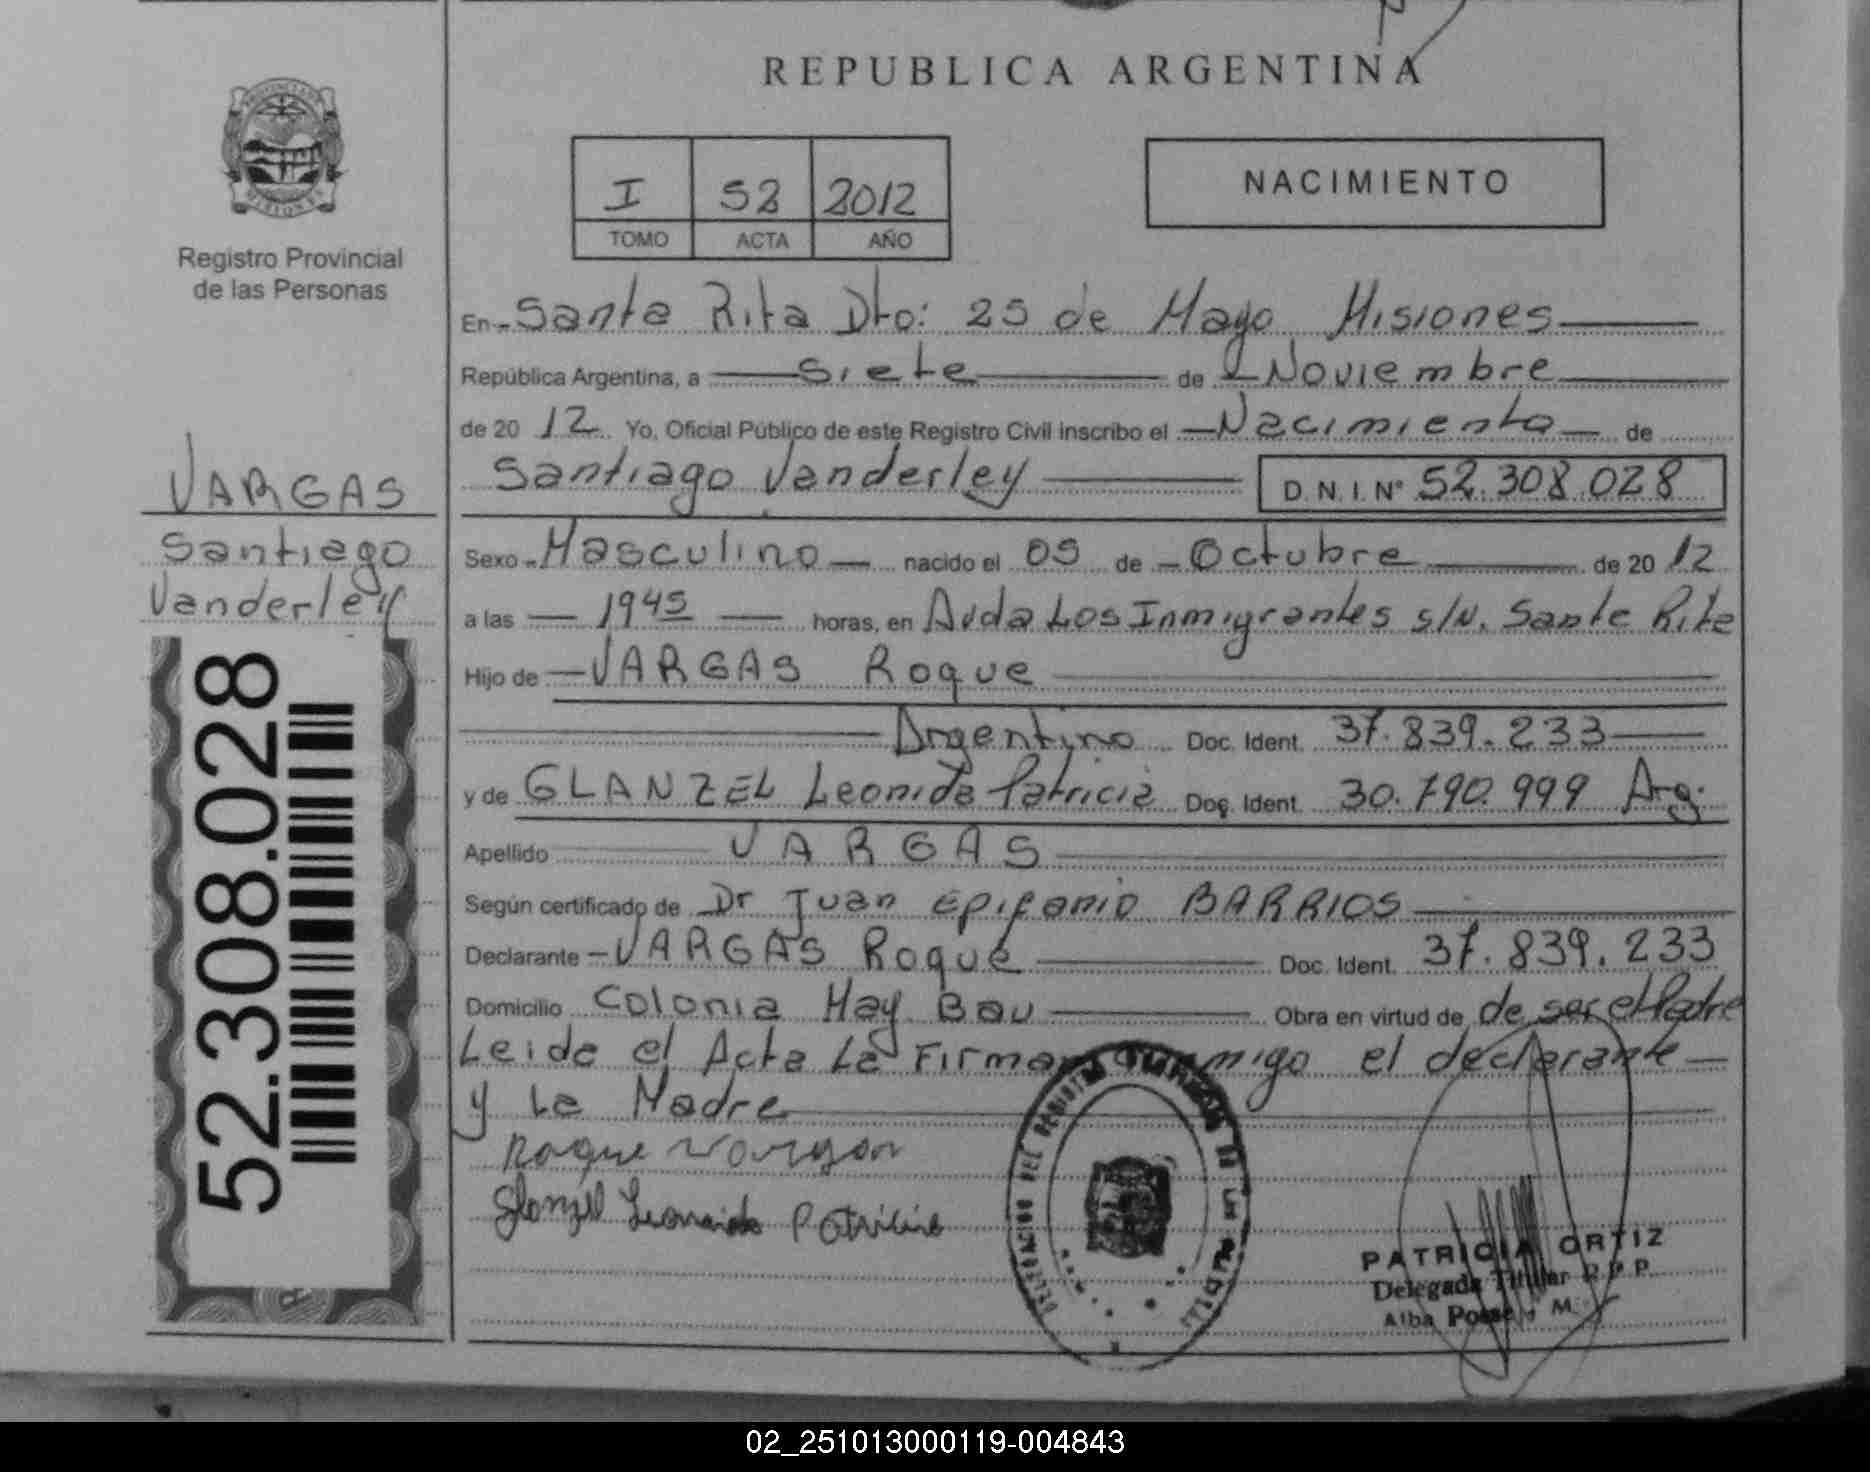 REPUBLICA ARGENTINA
PROVINCIA DE MISIONES
Registro Provincial
de las Personas
I 52 2012
TOMO ACTA AÑO
NACIMIENTO
En Santa Rita Dto: 25 de Mayo Misiones
República Argentina, a siete de Noviembre
de 20 12 Yo, Oficial Público de este Registro Civil inscribo el Nacimiento de
Santiago Vanderley D.N.I. Nº 52.308.028
VARGAS
Santiago
Vanderley
52.308.028
Sexo Masculino nacido el 05 de Octubre de 20 12
a las 1945 horas, en Avda Los Inmigrantes s/N. Santa Rita
Hijo de VARGAS Roque
Argentino Doc. Ident. 37.839.233
y de GLANZEL Leonida Patricia Doc. Ident. 30.790.999 Arg.
Apellido VARGAS
Según certificado de Dr Juan Epifanio BARRIOS
Declarante VARGAS Roque Doc. Ident. 37.839.233
Domicilio Colonia May Bau Obra en virtud de de ser el Padre
Leida el Acta La Firman conmigo el declarante
y La Madre
Roque Vargas
Glanzel Leonida Patricia
DELEGACION DEL REGISTRO PROVINCIAL DE LAS PERSONAS
PATRICIA ORTIZ
Delegada Titular R.P.P.
Alba Posse - M.
02_251013000119-004843